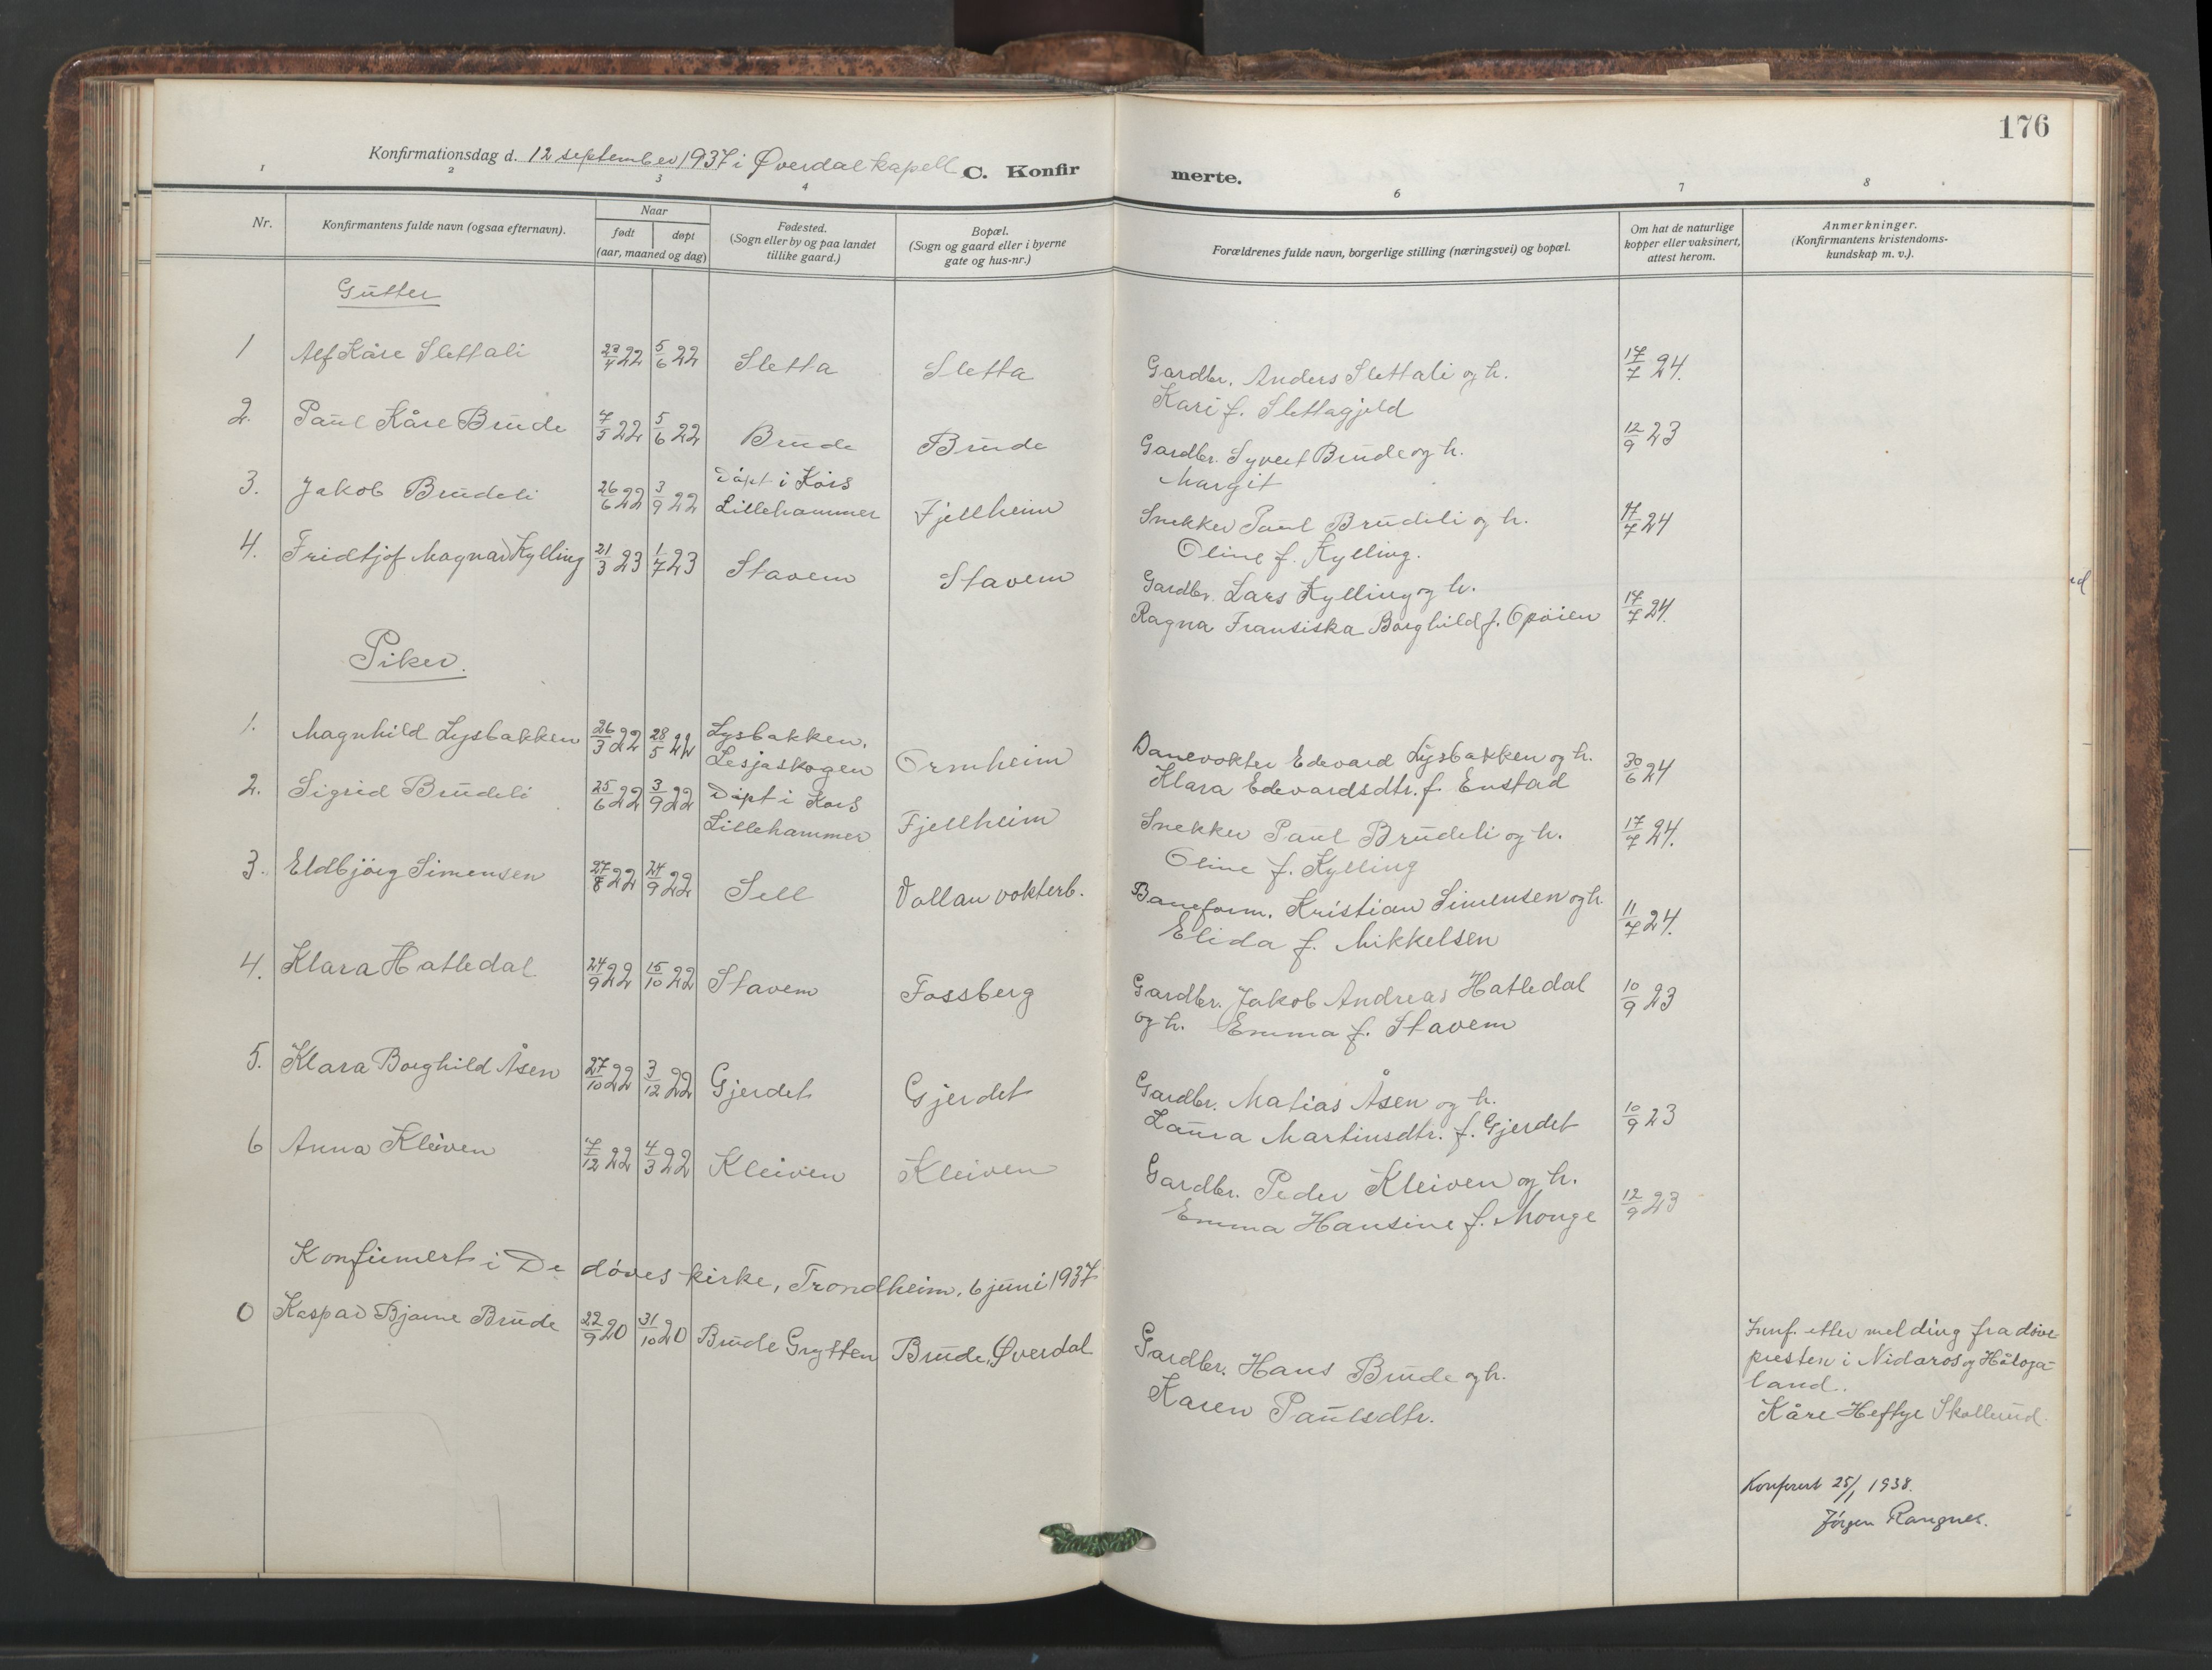 176
Konfirmationsdag d. 12 september 1937 i Øverdal kapell C. Konfir merte.
1 2 3 4 6 7 8
Nr. Konfirmantens fulde navn (ogsaa efternavn). Naar født døpt (aar, maaned og dag) Fødested. (Sogn eller by og paa landet tillike gaard.) Bopæl. (Sogn og gaard eller i byerne gate og hus-nr.) Forældrenes fulde navn, borgerlige stilling (næringsvei) og bopæl. Om hat de naturlige kopper eller vaksinert, attest herom. Anmerkninger. (Konfirmantens kristendomskundskap m. v.).
Gutter
1 Alf Kåre Slettali 22 5/6 22 Sletta Sletta Gardbr. Anders Slettali og h. 17/7 24.
Kari f. Slettagjeld
2. Paul Kåre Brude 7/5 22 5/6 22 Brude Brude Gardbr. Syvert Brude og h. 12/9 23
Margit
3. Jakob Brudeli 26/6 22 3/9 22 Døpt i Kors Lillehammer Fjellheim Snekker Paul Brudeli og h. 17/7 24
Oline f. Kylling.
4. Fridtjof Magnar Kylling 21/3 23 1/7 23 Stavem Stavem Gardbr. Lars Kylling og h. 17/7 24.
Ragna Fransiska Borghild f. Opøien
Piker.
1. Magnhild Lysbakken 26/3 22 28/5 22 Lysbakken, Lesjaskogen Ormheim Banevokter Edevard Lysbakken og h. 30/6 24
Klara Edevardsdtr. f. Enstad
2. Sigrid Brudeli 25/6 22 3/9 22 Døpt i Kors Lillehammer Fjellheim Snekker Paul Brudeli og h. 17/7 24.
Oline f. Kylling
3. Eldbjørg Simensen 27/8 22 24/9 22 Sell Vollan vokterb. Baneform. Kristian Simensen og h. 11/7 24.
Elida f. Mikkelsen
4. Klara Hatledal 24/9 22 15/10 22 Stavem Fossberg Gardbr. Jakob Andreas Hatledal 10/9 23
og h. Emma f. Stavem
5. Klara Borghild Åsen 27/10 22 3/12 22 Gjerdet Gjerdet Gardbr. Matias Åsen og h. 10/9 23
Laura Martinsdtr. f. Gjerdet
6 Anna Kleiven 7/12 22 4/3 22 Kleiven Kleiven Gardbr. Peder Kleiven og h. 12/9 23
Emma Hansine f. Monge
Konfirmert i De døves kirke, Trondheim, 6 juni 1937
0 Kaspar Bjarne Brude 22/9 20 31/10 20 Brude Grytten Brude, Øverdal Gardbr. Hans Brude og h.
Karen Paulsdtr.
Innf. etter melding fra døve-
presten i Nidaros og Håloga-
land.
Kåre Heftye Skollerud.
Konferert 25/1 1938.
Jørgen Rangnes.